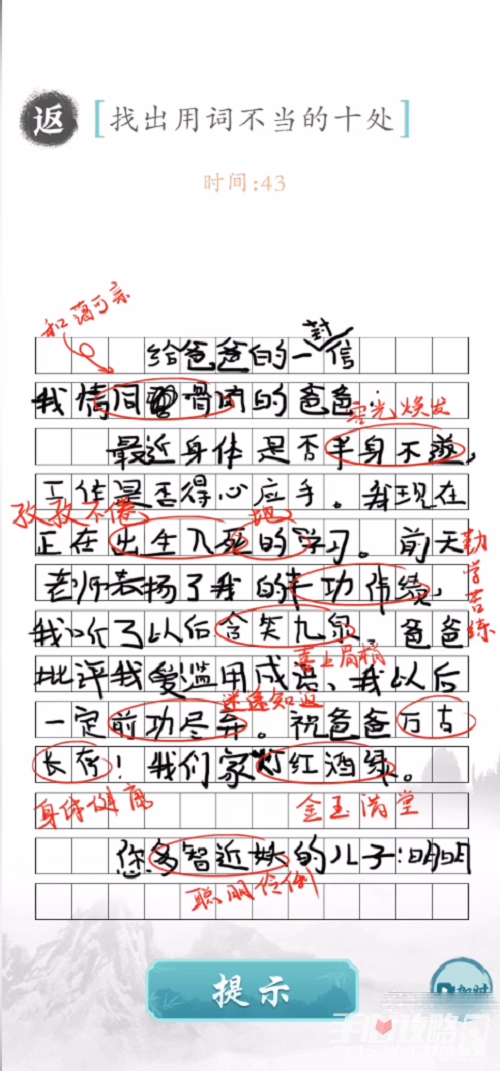 返 [找出用词不当的十处]
时间:43
和蔼可亲
封
给爸爸的一信
我情同骨肉的爸爸:
容光焕发
最近身体是否半身不遂,
工作是否得心应手。我现在
孜孜不倦 地
正在出生入死的学习。前天
老师表扬了我的丰功伟绩,
勤学苦练
我听了以后含笑九泉。爸爸
喜上眉梢
批评我爱滥用成语、我以后
迷途知返
一定前功尽弃。祝爸爸万古
长存!我们家灯红酒绿。
身体健康 金玉满堂
您多智近妖的儿子:明明
聪明伶俐
提示